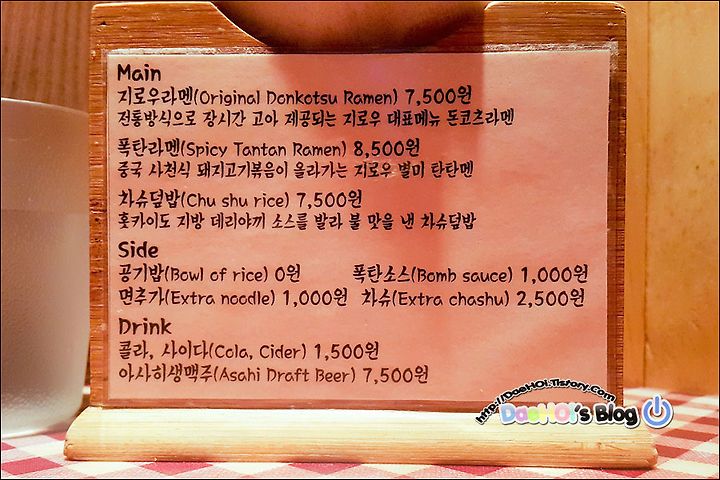 Main
지로우라멘(Original Donkotsu Ramen) 7,500원
전통방식으로 장시간 고아 제공되는 지로우 대표메뉴 돈코츠라멘
폭탄라멘(Spicy Tantan Ramen) 8,500원
중국 사천식 돼지고기볶음이 올라가는 지로우 별미 탄탄멘
차슈덮밥(Chu shu rice) 7,500원
홋카이도 지방 데리야끼 소스를 발라 불 맛을 낸 차슈덮밥
Side
공기밥(Bowl of rice) 0원 폭탄소스(Bomb sauce) 1,000원
면추가(Extra noodle) 1,000원 차슈(Extra chashu) 2,500원
Drink
콜라, 사이다(Cola, Cider) 1,500원
아사히생맥주(Asahi Draft Beer) 7,500원
http://DaeHOi.Tistory.Com
DaeHOi's Blog